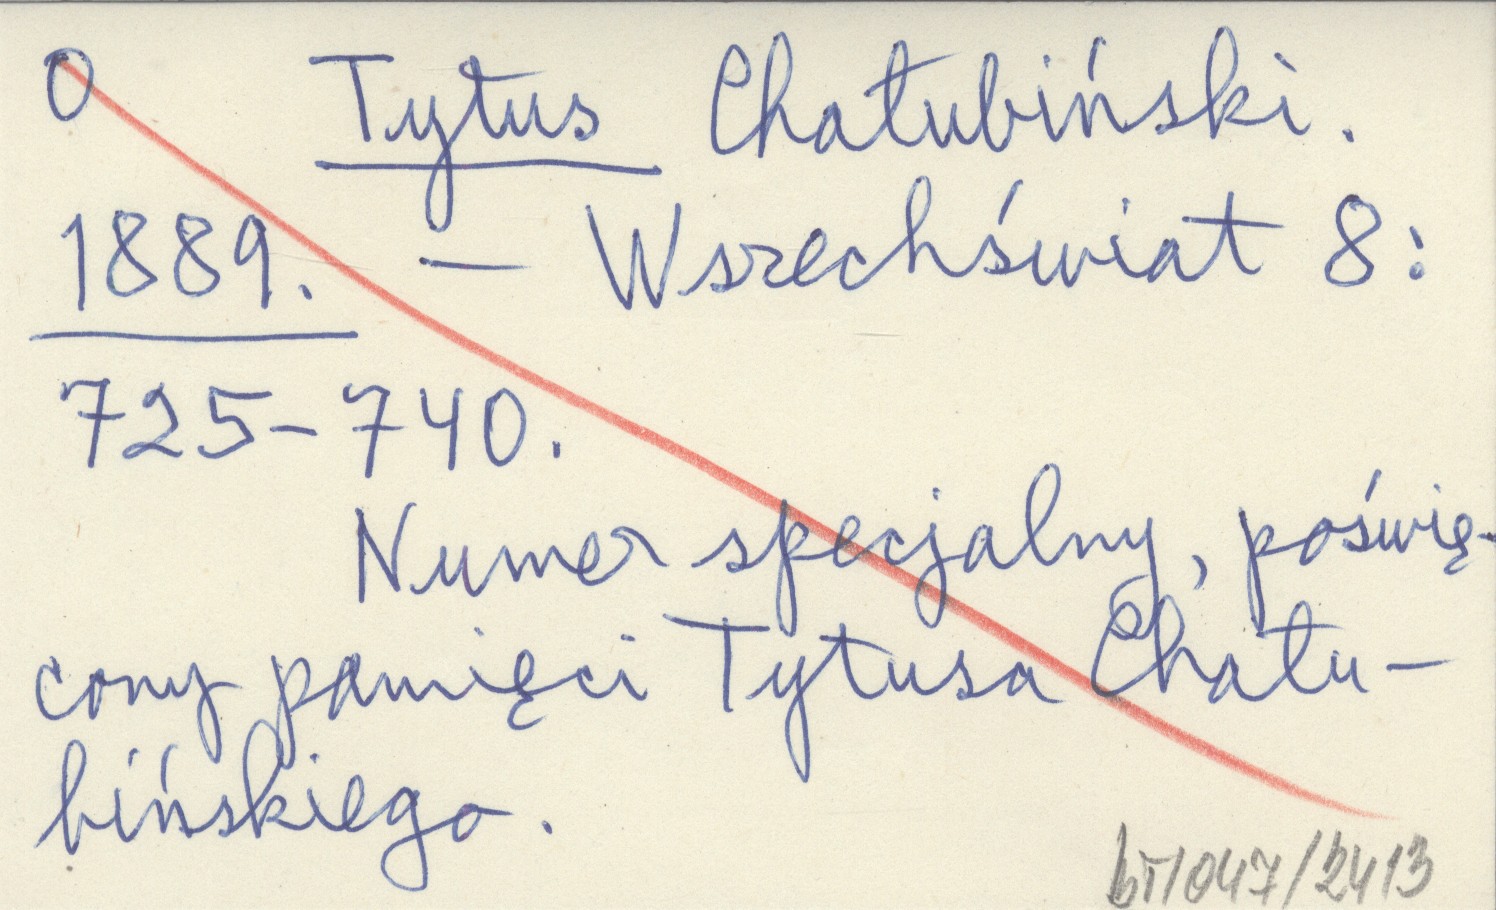 0 Tytus Chałubiński.
1889. — Wszechświat 8:
725-740.
Numer specjalny, poświę-
cony pamięci Tytusa Chału-
bińskiego.
bT/047/2413